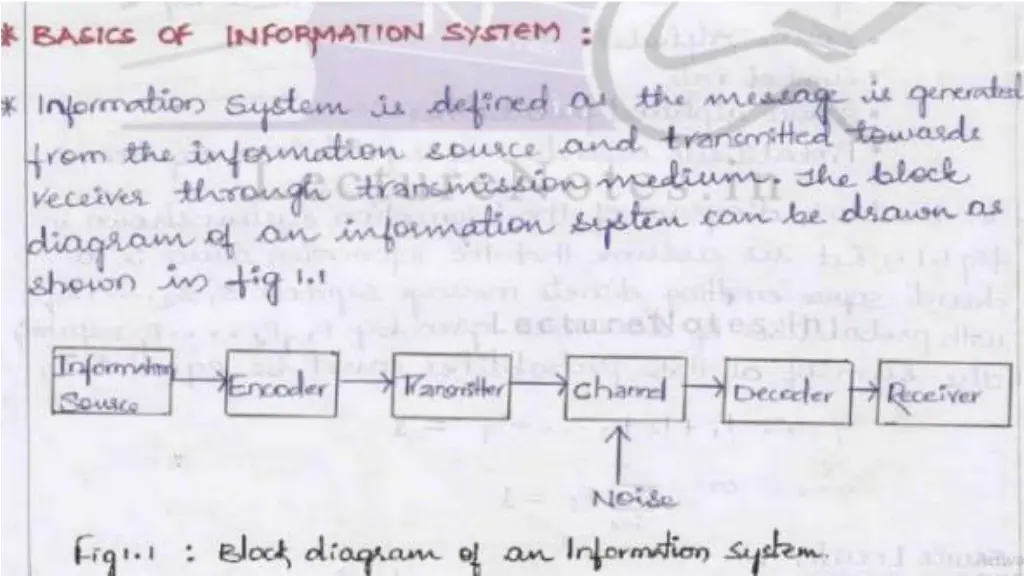 * BASICS OF INFORMATION SYSTEM :
* Information System is defined as the message is generated
from the information source and transmitted towards
receiver through transmission medium. The block
diagram of an information system can be drawn as
shown in fig 1.1
Information Source
Encoder
Transmitter
Channel
Decoder
Receiver
Noise
Fig 1.1 : Block diagram of an Information system
LectureNotes.in
LectureNotes.in